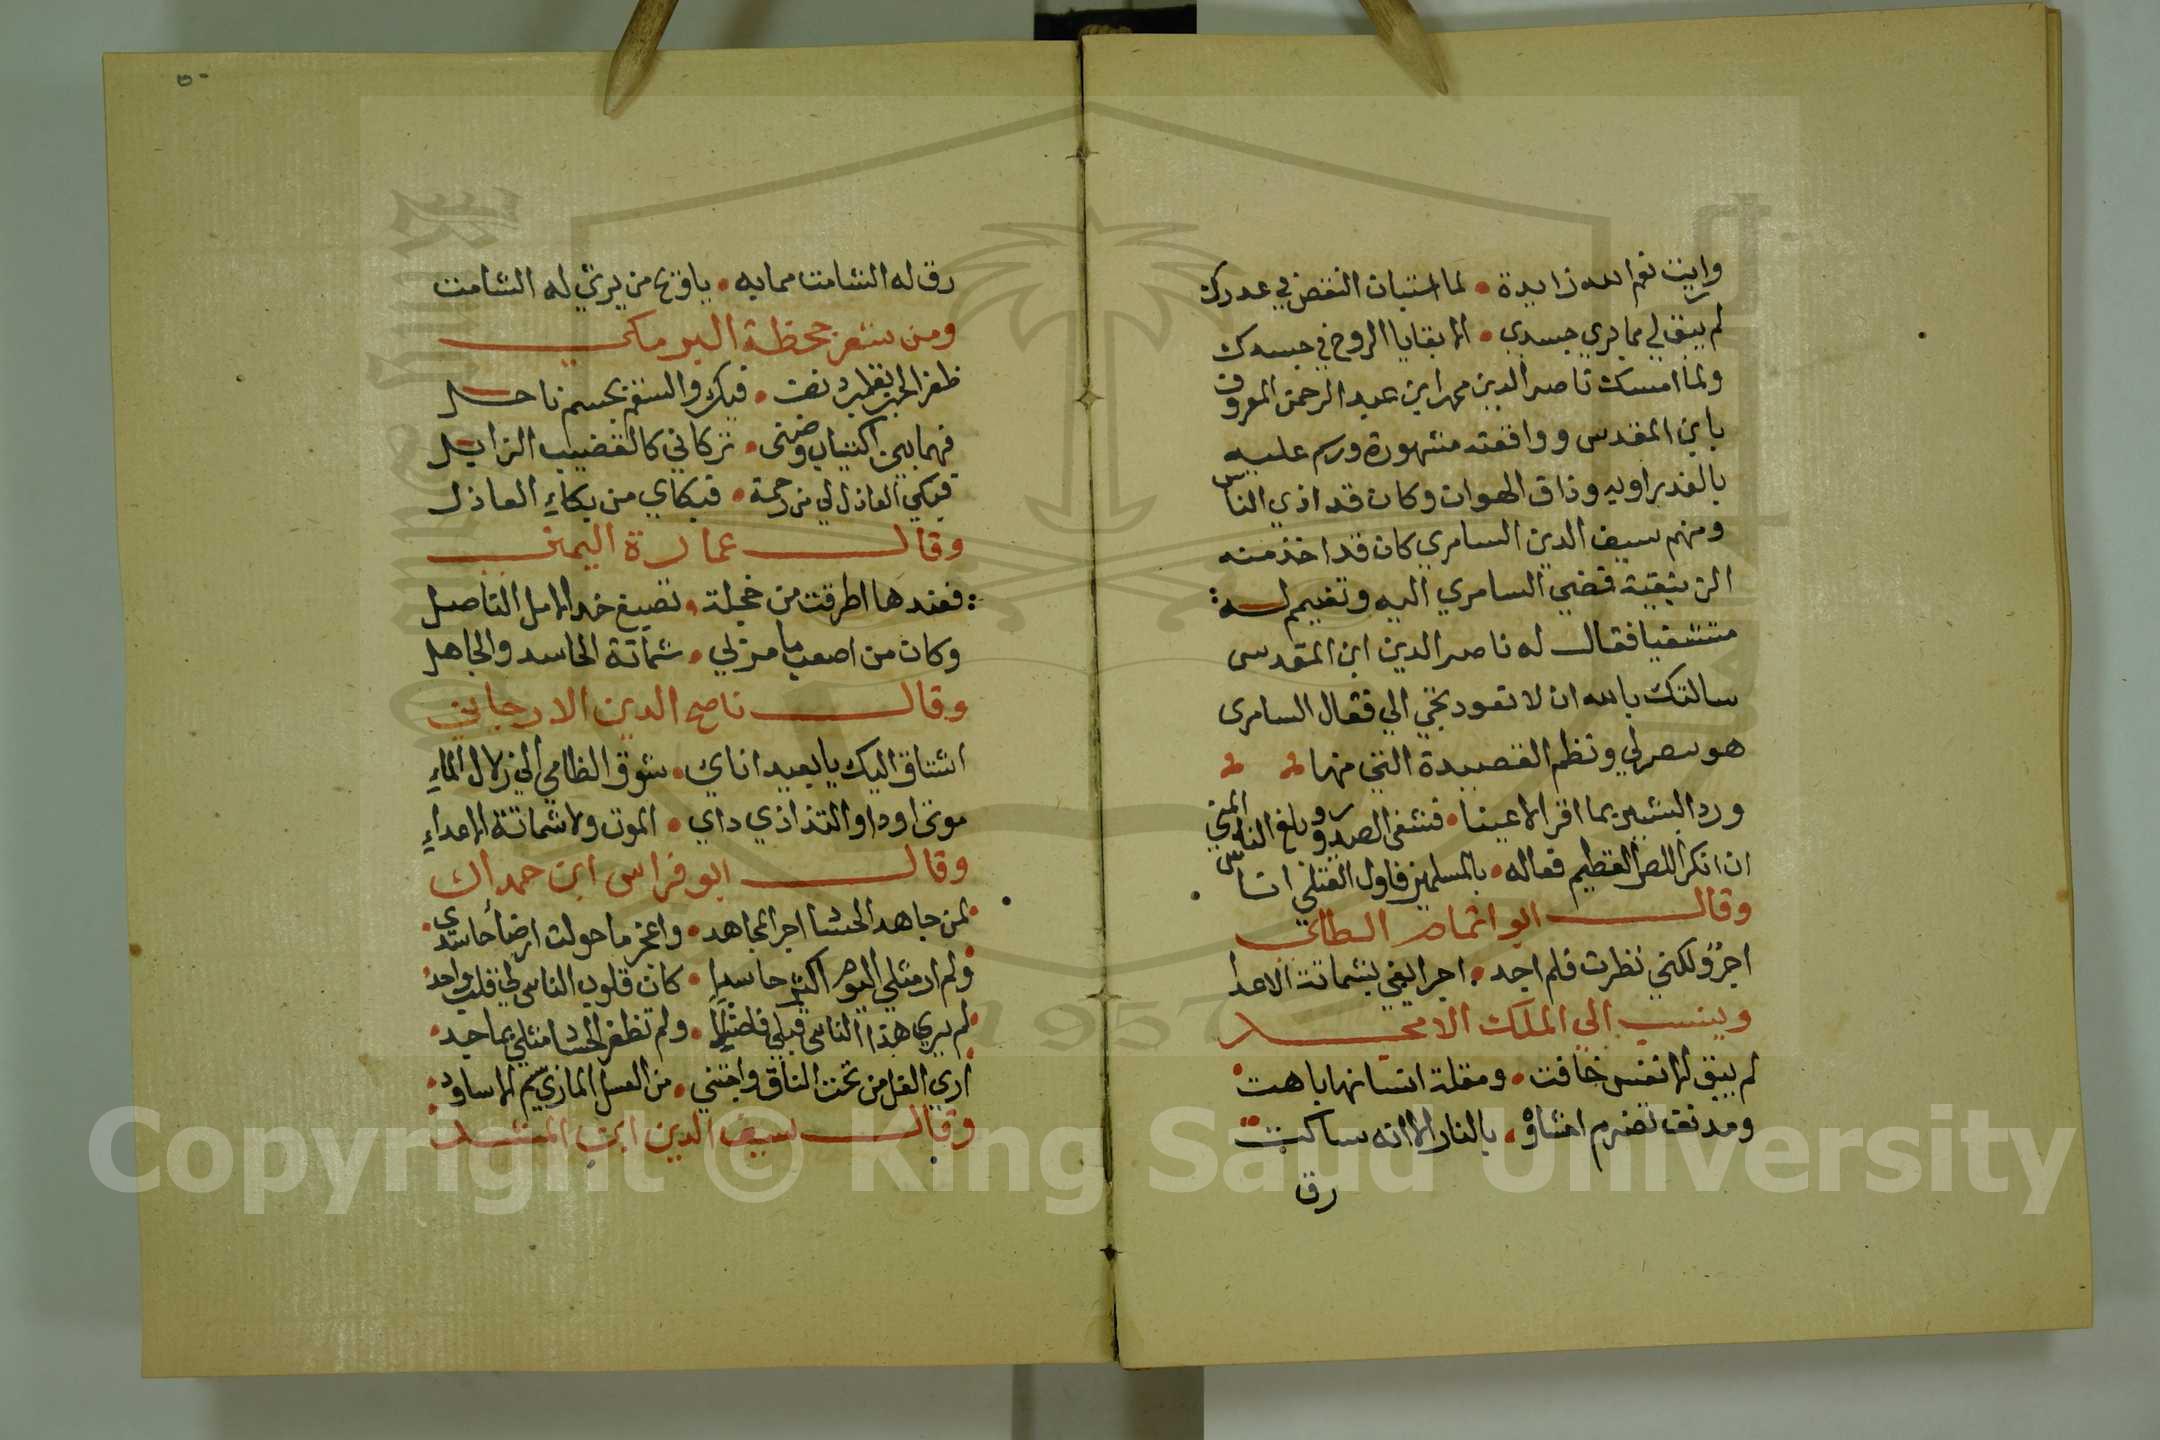 وابيت نعم الله زايدة • لما استبان النقص في عددك
لم يبق لي مما بري جسدي • الا بقايا الروح في جسدك
ولما امسك ناصر الدين محمد ابن عبد الرحمن المعروف
بابن المقدسي وواقعته مشهورة ورسم عليه
وذاق الهوان وكان قد اذي الناس
ومنهم سيف الدين السامري كان قد اخذ منه
فمضي السامري اليه
متشفيا فقال له ناصر الدين ابن المقدسي
سالتك بالله ان لا تعود تجي الي فقال السامري
هو ينصر لي ونظم القصيدة التي منها
ورد البشير بما اقر الاعينا • فشفي الصدور وبلغ الناس المني
ان انكر اللص العظيم فعاله • بالمسلمين فاول القتلي انا
وقال ابو اتمام الطاي
اجر ولكني نظرت فلم اجد • اجرا يفي بشماتة الاعدا
وينسب الي الملك الامجد
لم يبق الا نفس خافت • ومقلة انسانها باهت
ومدنف تضرم احشاؤه • بالنار الا انه ساكت
رق
٥٠
رق له الشامت مما به • يا ويح من يرثي له الشامت
ومن شعر جحظة البرمكي
ظفر الحب بقلب دنف • فيك والسقم بجسم ناحل
فهما بين اكتياب وضني • تركاني كالقضيب الذابل
فبكي العاذل لي من رحمة • فبكاي من بكاء العاذل
وقال عمارة اليمني
فعندها اطرقت من خجلة • تصبغ خد الامل الناصل
وكان من اصعب ما مر لي • شماتة الحاسد والجاهل
وقال ناصح الدين الارجاني
اشتاق اليك يا بعيدا ناي • شوق الظامي الي زلال الماء
موتي اودا والتذاذي داي • الموت ولا شماتة الاعداء
وقال ابو فراس ابن حمدان
لمن جاهد الحسا اجر المجاهد • واعجز ما حولت ارضا حاسدي
ولم ار مثلي اليوم اكثر حاسدا • كان قلوب الناس لي قلب واحد
لم يري هذا الناس قبلي فاضلا • ولم تظفر الحسا مثلي بماجد
اري الغل من تحت النفاق واجتني • من العسل الماذي سم الاساود
وقال سيف الدين ابن المشد
Copyright © King Saud University
1957